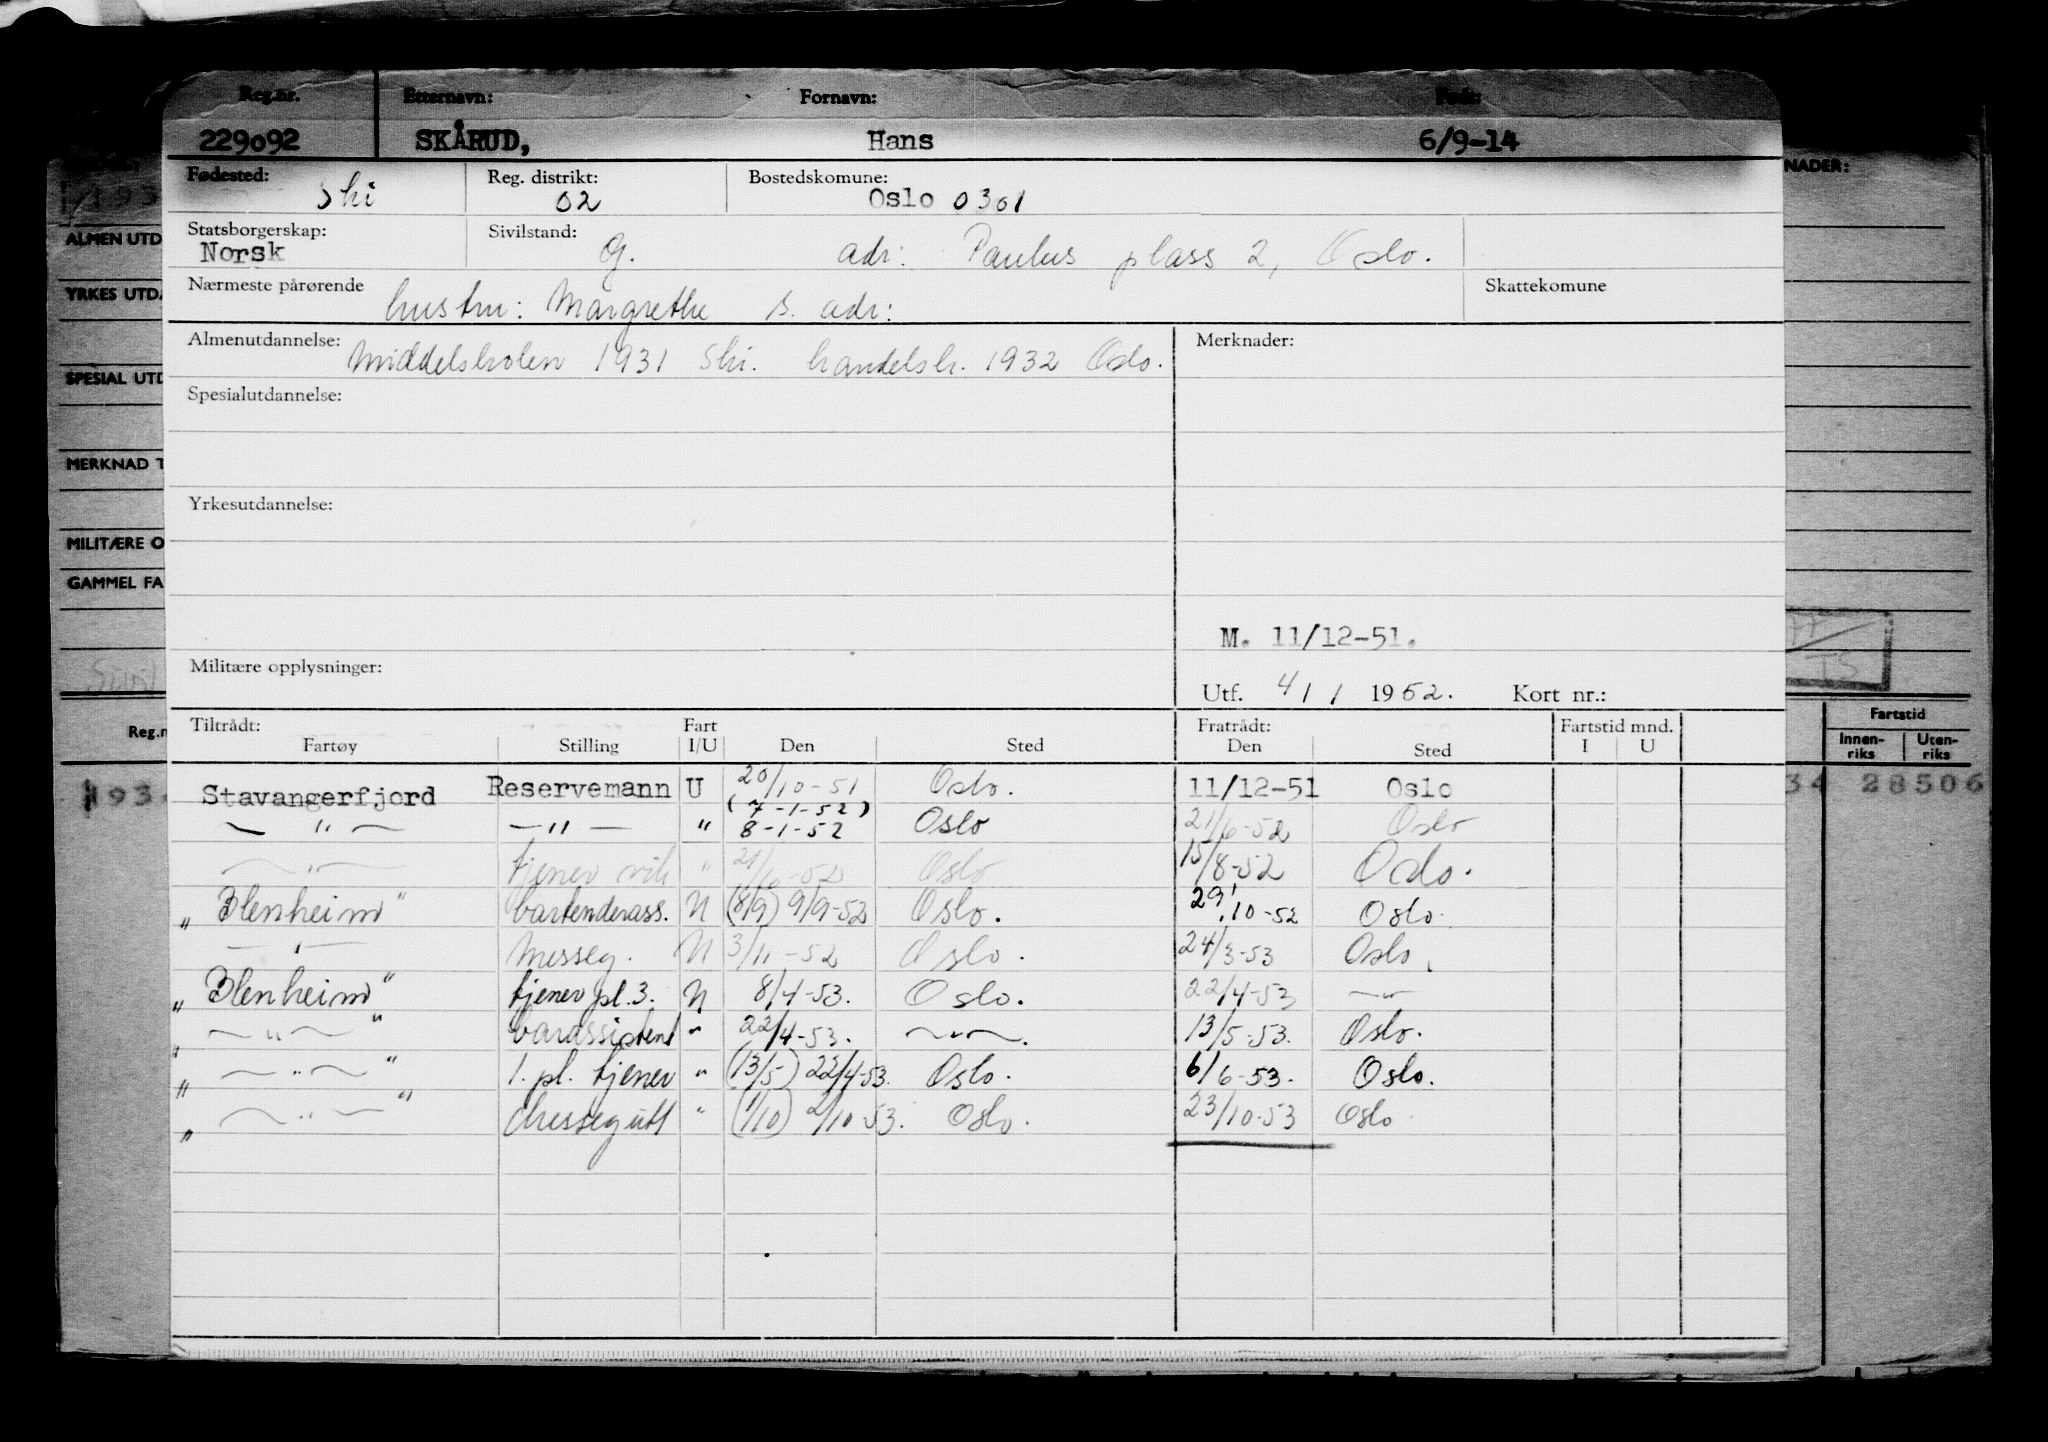 Reg.nr. Etternavn: Fornavn: Født:
229092 SKÅRUD, Hans 6/9-14
Fødested: Ski Reg. distrikt: 02 Bostedskomune: Oslo 0301
Statsborgerskap: Norsk Sivilstand: G. adr: Paulus plass 2, Oslo.
Nærmeste pårørende hustru: Margrethe s. adr: Skattekomune
Almenutdannelse: Middelskolen 1931 Ski. handelsk. 1932 Oslo. Merknader:
Spesialutdannelse:
Yrkesutdannelse:
M. 11/12-51.
Militære opplysninger:
Utf. 4/1 1952. Kort nr.:
Tiltrådt: Fart Fratrådt: Fartstid mnd.
Fartøy Stilling I/U Den Sted Den Sted I U
Stavangerfjord Reservemann U 20/10-51 Oslo. 11/12-51 Oslo
— " — — " — " (7-1-52) 8-1-52 Oslo 21/6-52 Oslo
— " — tjener vik " 21/6-52 Oslo 15/8-52 Oslo.
"Blenheim" bartenderass. U (8/9) 9/9-52 Oslo. 29/10-52 Oslo.
— " — Messeg. U 3/11-52 Oslo. 24/3-53 Oslo.
"Blenheim" tjener pl.3. U 8/4-53. Oslo. 22/4-53 — " —
" — " — " barassistent " 22/4-53. — " —. 13/5-53. Oslo.
" — " — " 1. pl. tjener " (13/5) 22/4-53. Oslo. 6/6-53. Oslo.
" — " — " Messegutt " (1/10) 2/10-53. Oslo. 23/10-53 Oslo
NADER:
ALMEN UTD
YRKES UTD.
SPESIAL UTD
MERKNAD T
MILITÆRE O
GAMMEL FA
77
TS
Reg.n
Fartstid
Innen-riks Uten-riks
193
34 28506